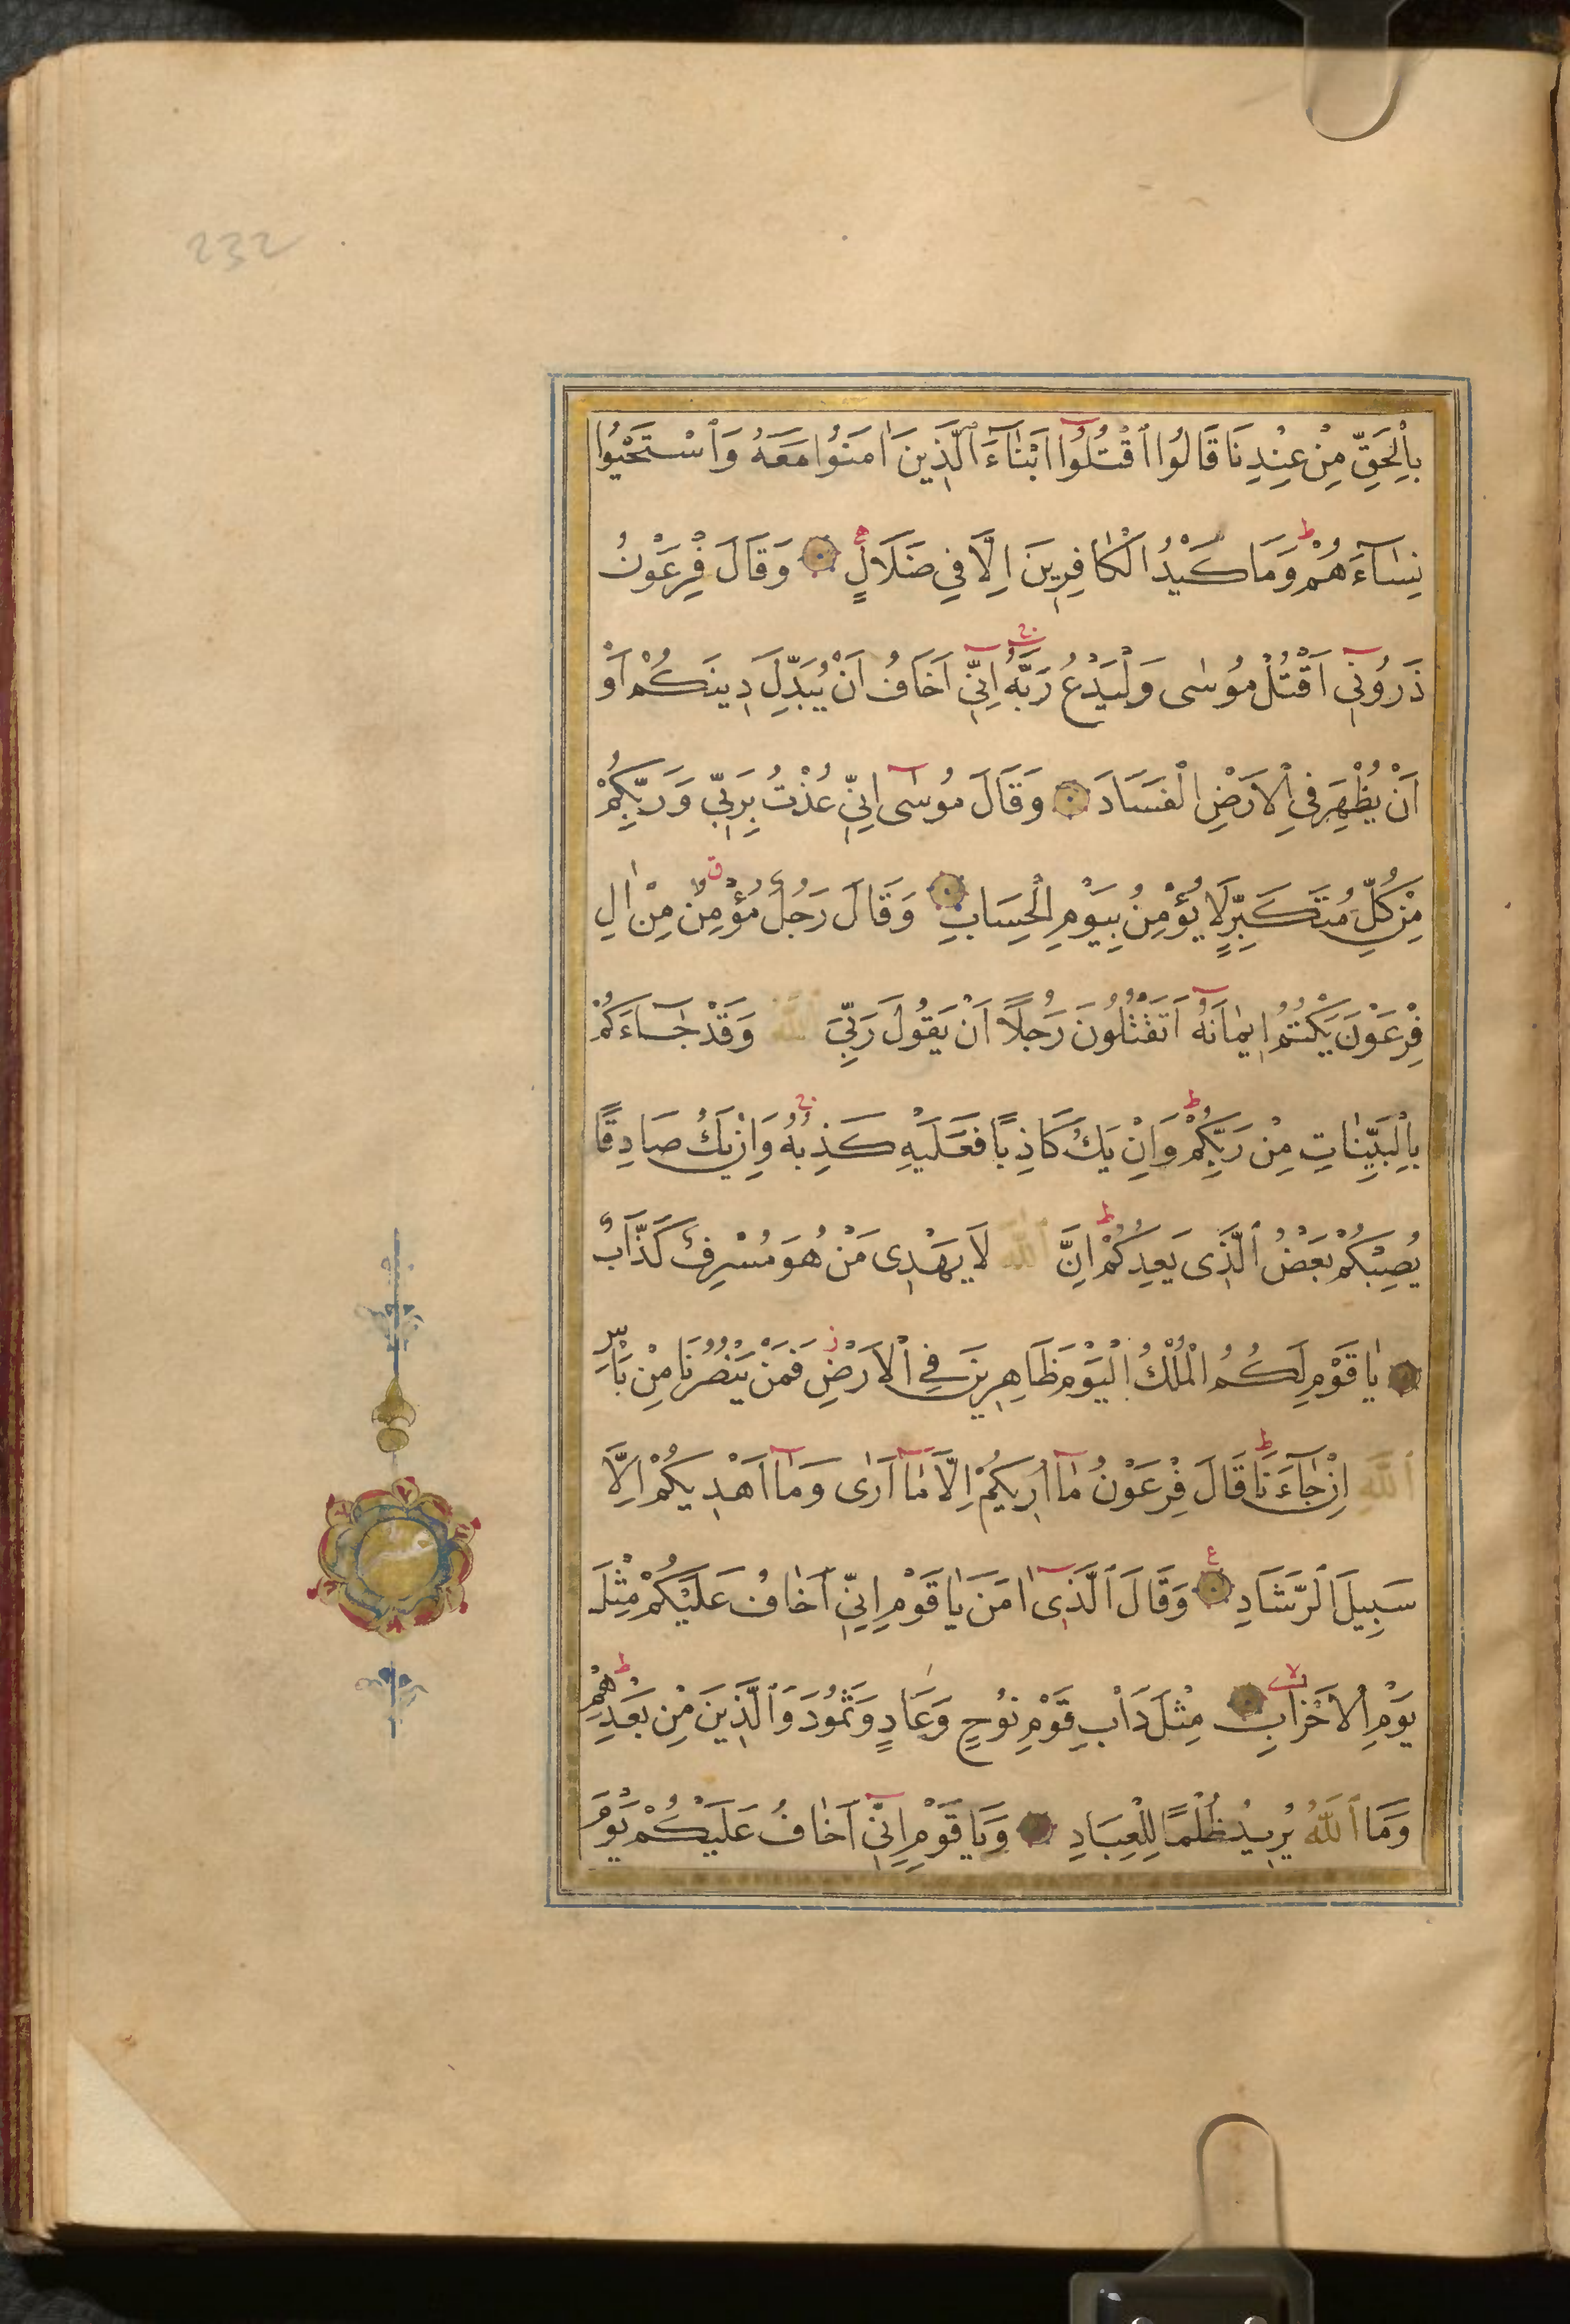 232
بِالْحَقِّ مِنْ عِنْدِنَا قَالُوا ٱقْتُلُوٓا اَبْنَآءَ ٱلَّذِينَ اٰمَنُوا مَعَهُ وَٱسْتَحْيُوا
نِسَآءَهُمْ وَمَا كَيْدُ الْكَافِرِينَ اِلَّا فِي ضَلَالٍ وَقَالَ فِرْعَوْنُ
ذَرُونِٓي اَقْتُلْ مُوسٰى وَلْيَدْعُ رَبَّهُ اِنِّٓي اَخَافُ اَنْ يُبَدِّلَ دِينَكُمْ اَوْ
اَنْ يُظْهِرَ فِي الْاَرْضِ الْفَسَادَ وَقَالَ مُوسٰٓى اِنِّي عُذْتُ بِرَبِّي وَرَبِّكُمْ
مِنْ كُلِّ مُتَكَبِّرٍ لَا يُؤْمِنُ بِيَوْمِ الْحِسَابِ وَقَالَ رَجُلٌ مُؤْمِنٌ مِنْ اٰلِ
فِرْعَوْنَ يَكْتُمُ اِيمَانَهُٓ اَتَقْتُلُونَ رَجُلًا اَنْ يَقُولَ رَبِّيَ اللّٰهُ وَقَدْ جَآءَكُمْ
بِالْبَيِّنَاتِ مِنْ رَبِّكُمْ وَاِنْ يَكُ كَاذِبًا فَعَلَيْهِ كَذِبُهُ وَاِنْ يَكُ صَادِقًا
يُصِبْكُمْ بَعْضُ ٱلَّذِي يَعِدُكُمْ اِنَّ ٱللّٰهَ لَا يَهْدِي مَنْ هُوَ مُسْرِفٌ كَذَّابٌ
يَا قَوْمِ لَكُمُ الْمُلْكُ الْيَوْمَ ظَاهِرِينَ فِي الْاَرْضِ فَمَنْ يَنْصُرُنَا مِنْ بَأْسِ
ٱللّٰهِ اِنْ جَآءَنَا قَالَ فِرْعَوْنُ مَآ اُرِيكُمْ اِلَّا مَآ اَرٰى وَمَآ اَهْدِيكُمْ اِلَّا
سَبِيلَ ٱلرَّشَادِ وَقَالَ ٱلَّذِيٓ اٰمَنَ يَا قَوْمِ اِنِّٓي اَخَافُ عَلَيْكُمْ مِثْلَ
يَوْمِ الْاَحْزَابِ مِثْلَ دَاْبِ قَوْمِ نُوحٍ وَعَادٍ وَثَمُودَ وَٱلَّذِينَ مِنْ بَعْدِهِمْ
وَمَا ٱللّٰهُ يُرِيدُ ظُلْمًا لِلْعِبَادِ وَيَا قَوْمِ اِنِّٓي اَخَافُ عَلَيْكُمْ يَوْمَ